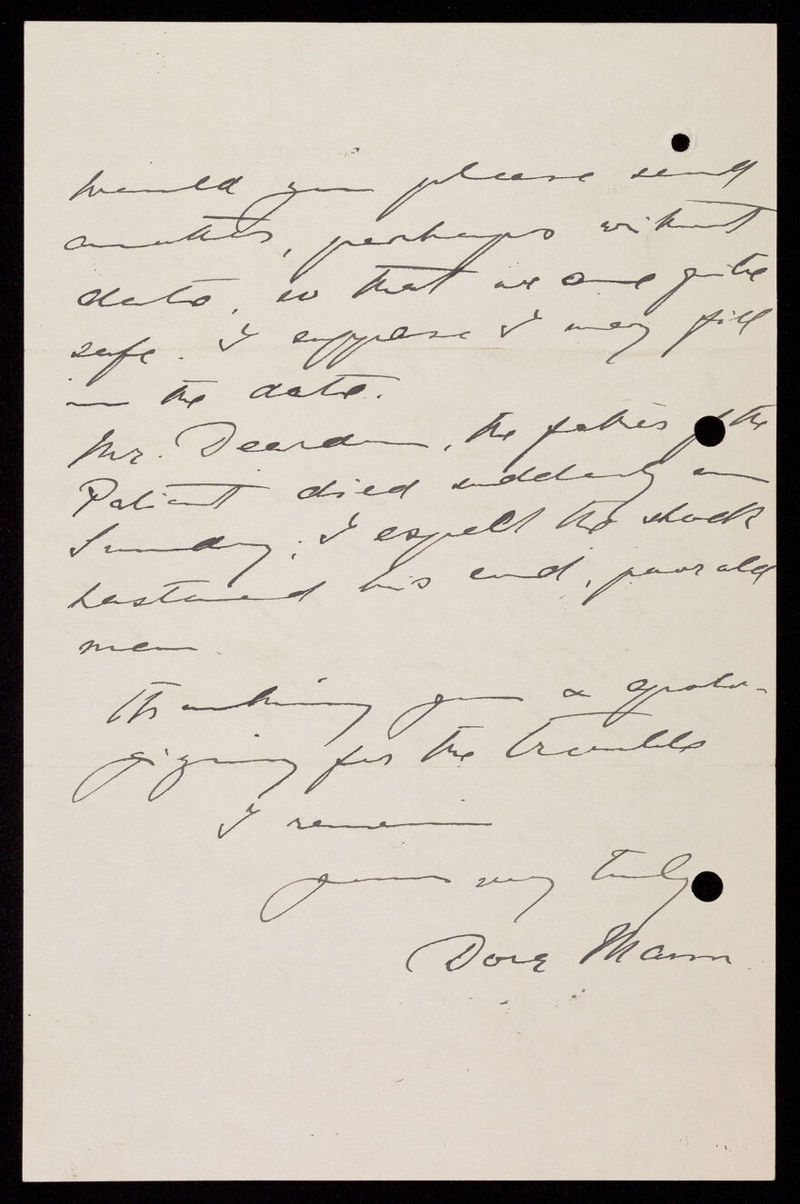 Would you please send
another, perhaps without
date, so that we are quite
safe. I suppose I may fill
in the date.
Mr. Dearden, the father of the
Patient died suddenly on
Sunday; I expect the shock
hastened his end, poor old
man.
Thanking you & apolo-
gizing for the trouble
I remain
yours very truly
Mann